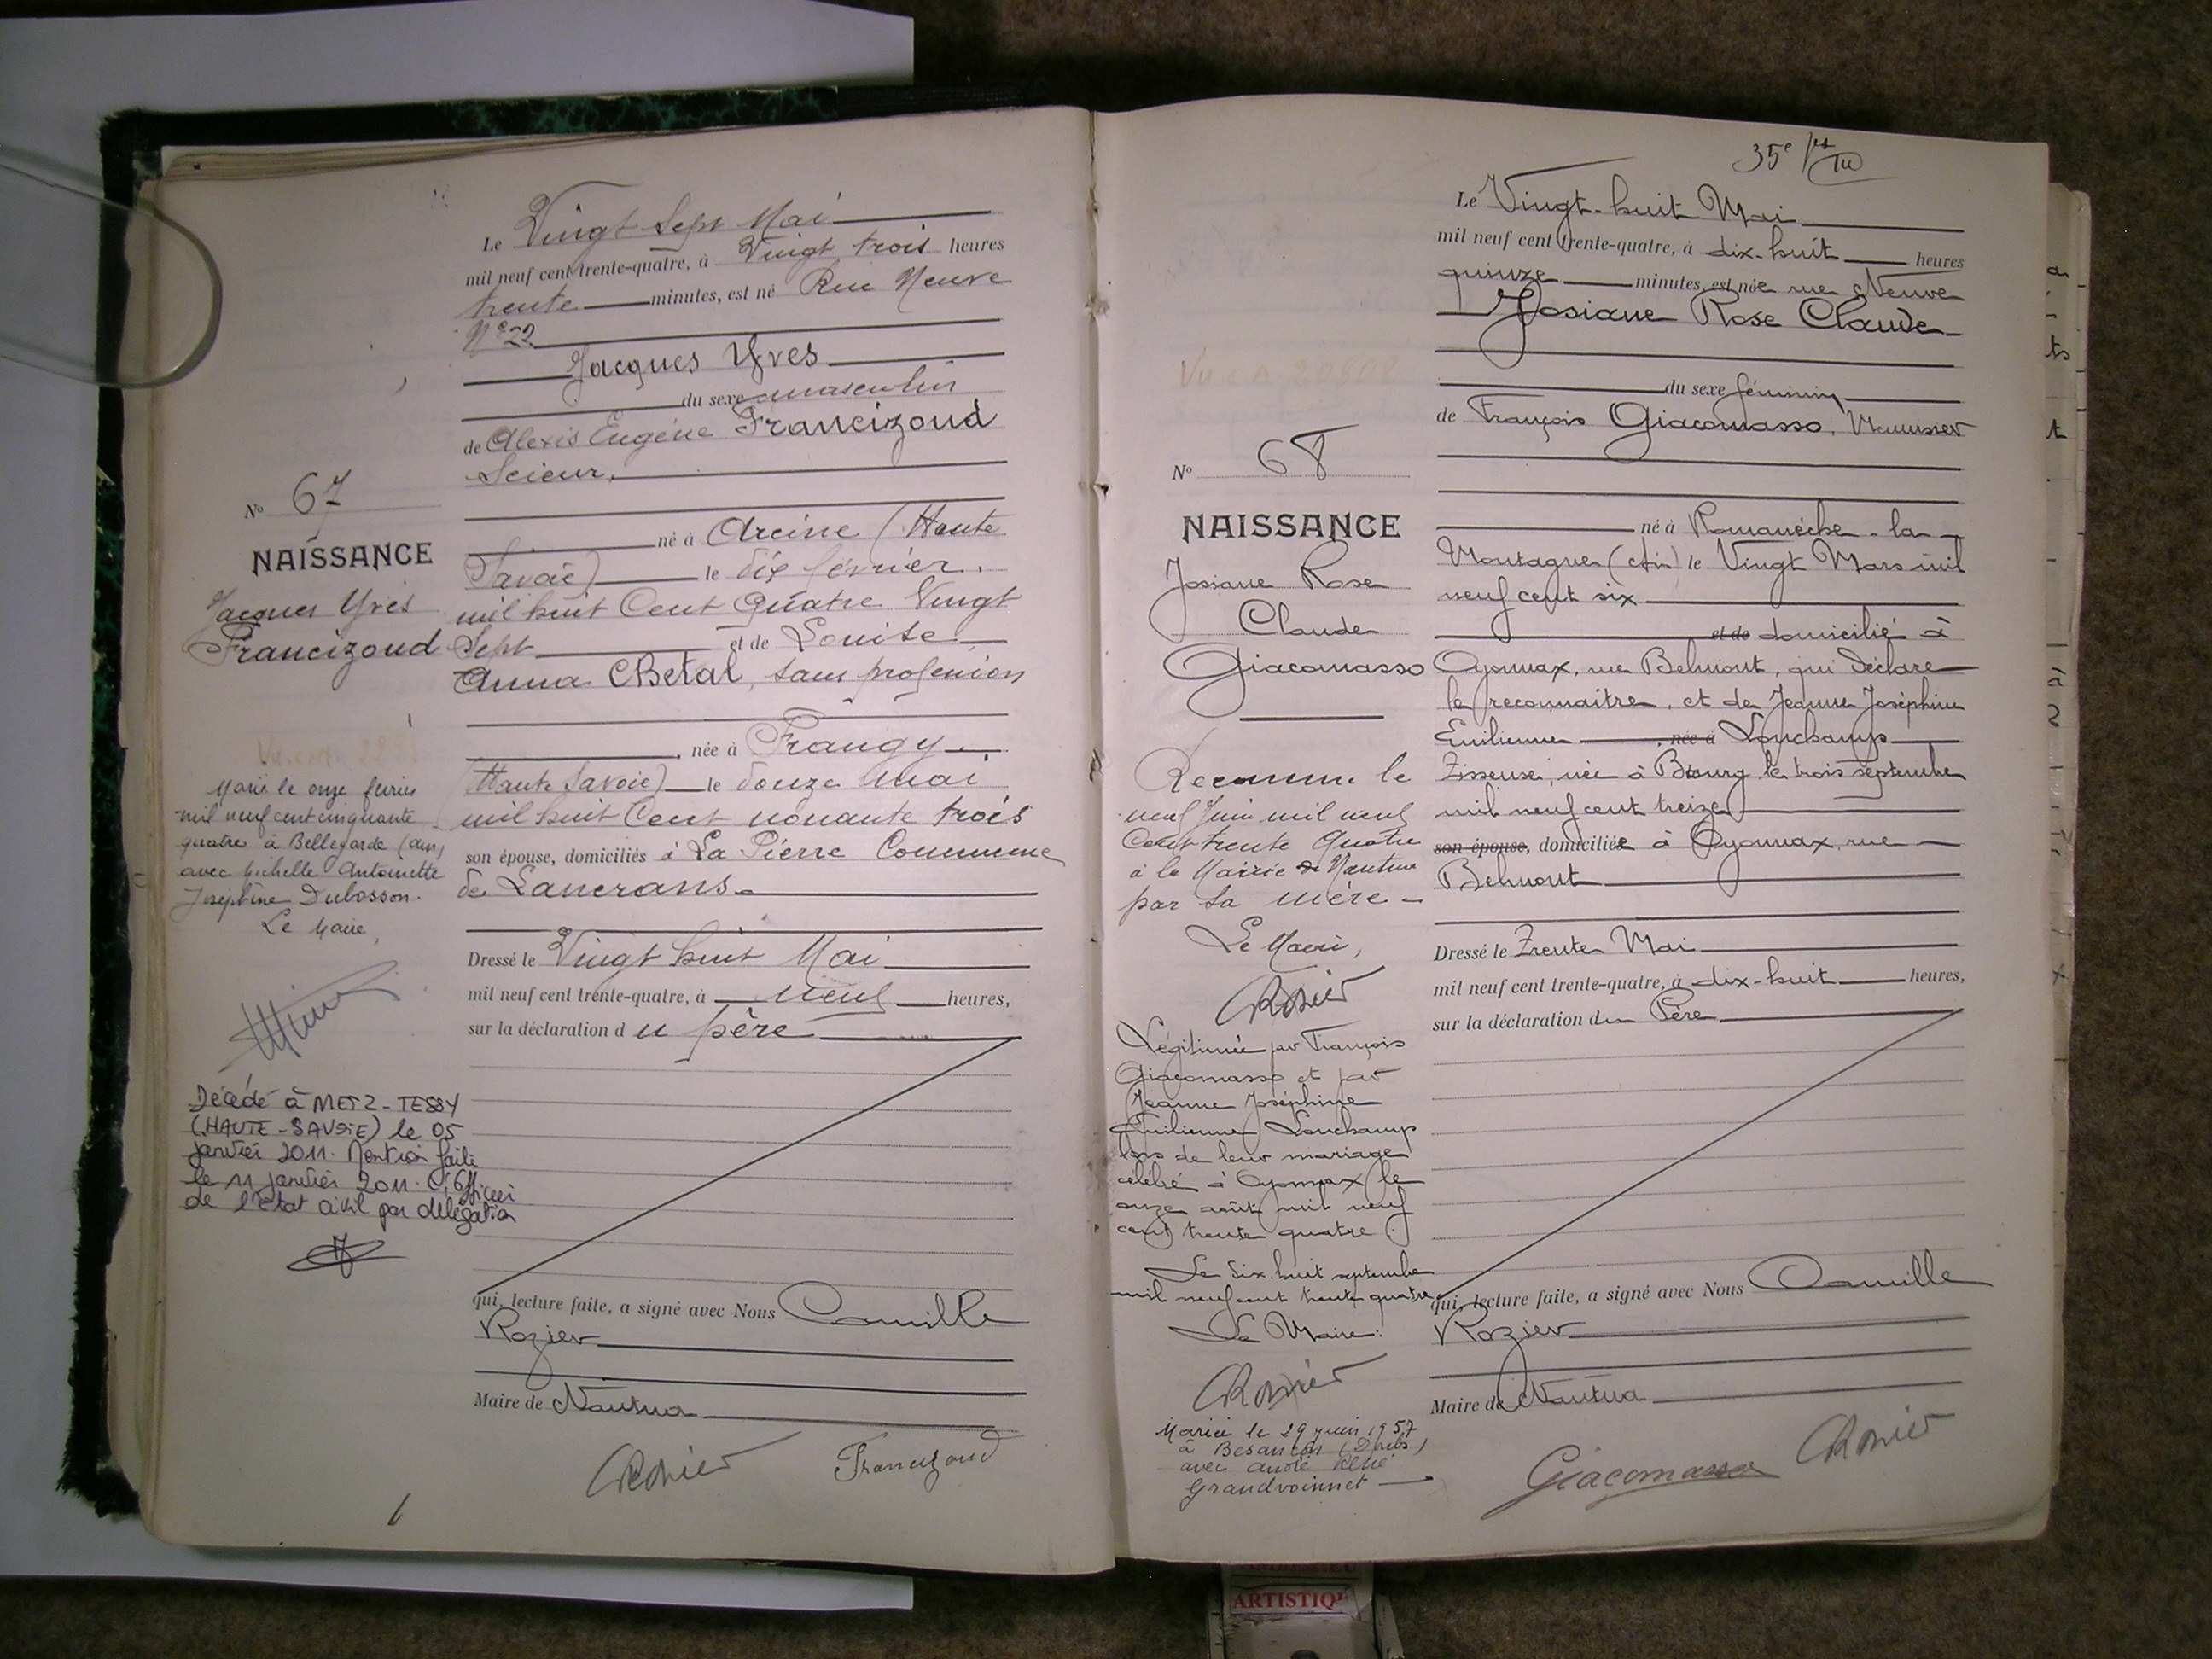 Le Vingt Sept Mai
mil neuf cent trente-quatre, à Vingt trois heures
trente minutes, est né Rue Neuve
N° 22
Jacques Yves
du sexe masculin
de Alexis Eugène Francizoud
Scieur,
né à Arcine (Haute
Savoie) le dix février
mil huit Cent Quatre Vingt
Sept et de Louise
Anna Chetal, sans profession
née à Frangy
(Haute Savoie) le douze Mai
mil huit Cent nonante trois
son épouse, domiciliés à La Pierre Commune
de Lancrans
Dressé le Vingt huit Mai
mil neuf cent trente-quatre, à neuf heures,
sur la déclaration du père
qui, lecture faite, a signé avec Nous Camille
Rozier
Maire de Nantua
CRozier Francizoud
N° 67
NAISSANCE
Jacques Yves
Francizoud
Marié le onze février
mil neuf cent cinquante
quatre à Bellegarde (Ain)
avec Michelle Antoinette
Joséphine Dubosson.
Le Maire,
Décédé à METZ-TESSY
(HAUTE-SAVOIE) le 05
janvier 2011. Mention faite
le 11 janvier 2011. L'Officier
de l'état civil par délégation
35e
Le Vingt-huit Mai
mil neuf cent trente-quatre, à dix-huit heures
quinze minutes, est née rue Neuve
Josiane Rose Claude
du sexe féminin
de François Giacomasso, Menuisier
né à Romanèche-la-
Montagne (Ain) le Vingt Mars mil
neuf cent six
et de domicilié à
Oyonnax, rue Belmont, qui déclare
le reconnaître, et de Jeanne Joséphine
Emilienne née à Lonchamp
Tisseuse, née à Bourg le trois septembre
mil neuf cent treize
son épouse, domiciliée à Oyonnax, rue
Belmont
Dressé le Trente Mai
mil neuf cent trente-quatre, à dix-huit heures,
sur la déclaration du Père
qui, lecture faite, a signé avec Nous Camille
Rozier
Maire de Nantua
Giacomasso CRozier
N° 68
NAISSANCE
Josiane Rose
Claude
Giacomasso
Reconnue le
neuf Juin mil neuf
Cent trente Quatre
à la Mairie de Nantua
par sa mère
Le Maire,
CRozier
Légitimée par François
Giacomasso et par
Jeanne Joséphine
Emilienne Lonchamp
lors de leur mariage
célébré à Oyonnax le
onze août mil neuf
cent trente quatre.
Le dix-huit septembre
mil neuf cent trente quatre
Le Maire:
CRozier
Mariée le 29 juin 1957
à Besançon (Doubs)
avec André René
Grandvoinnet
ARTISTIQ